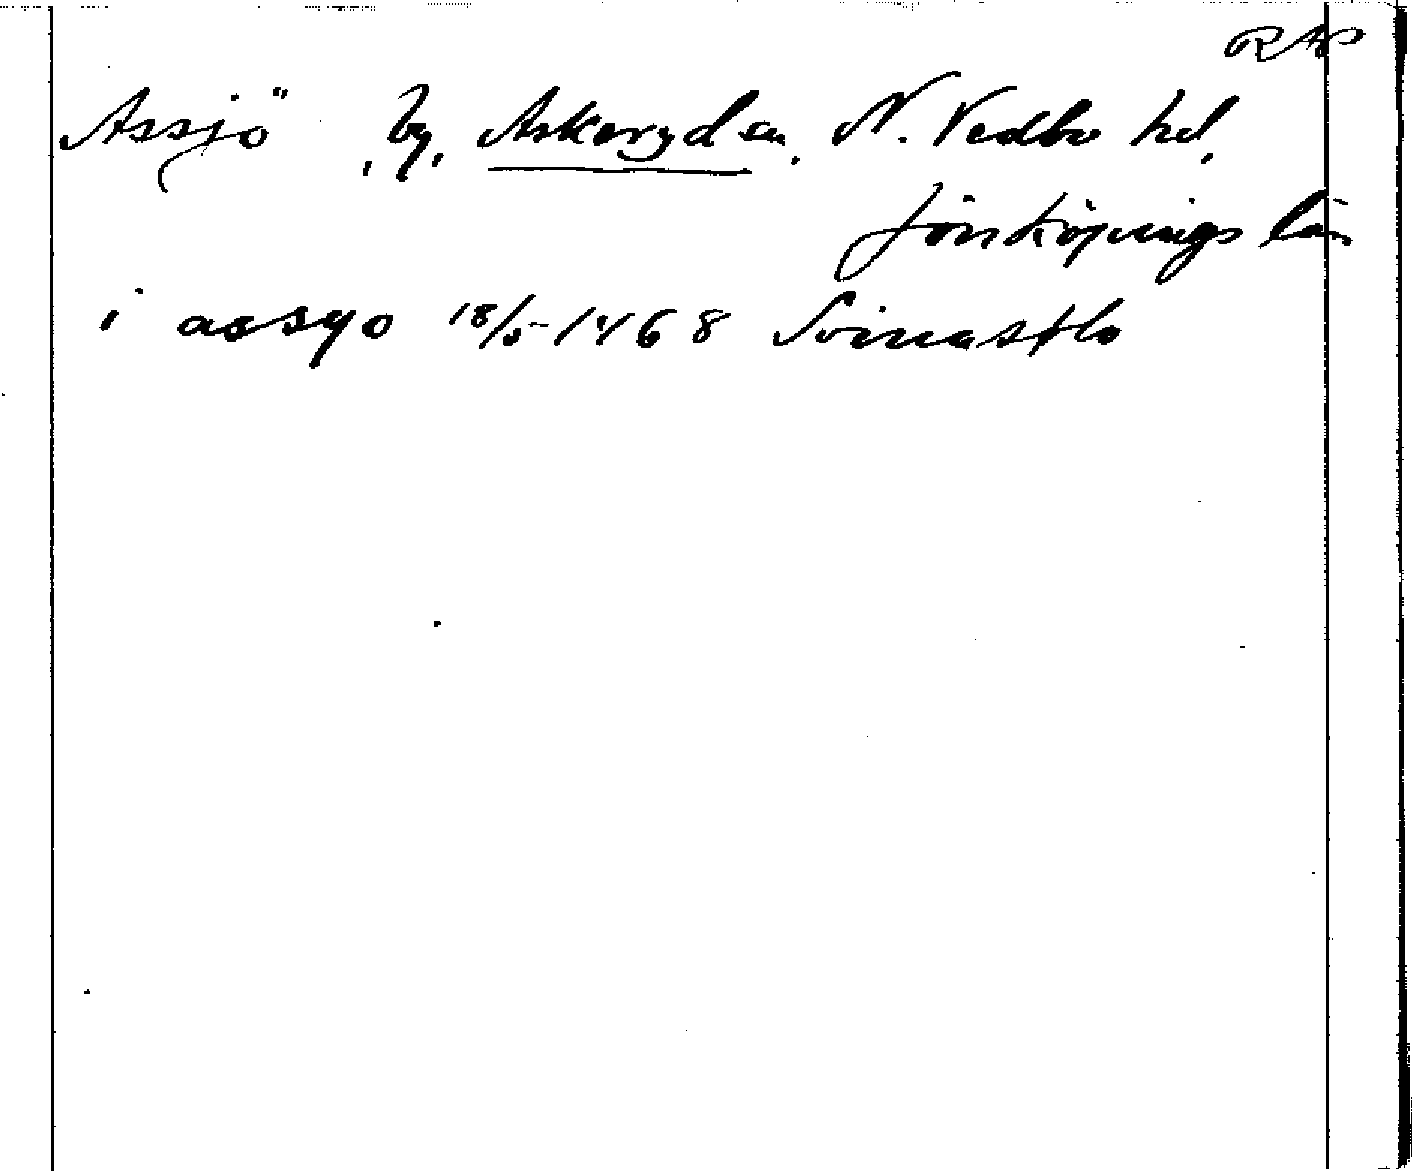 RAP
Assjö, by, Askeryd sn, N. Vedbo hd,
Jönköpings län
i assyo 18/5-1468 Svinastlo